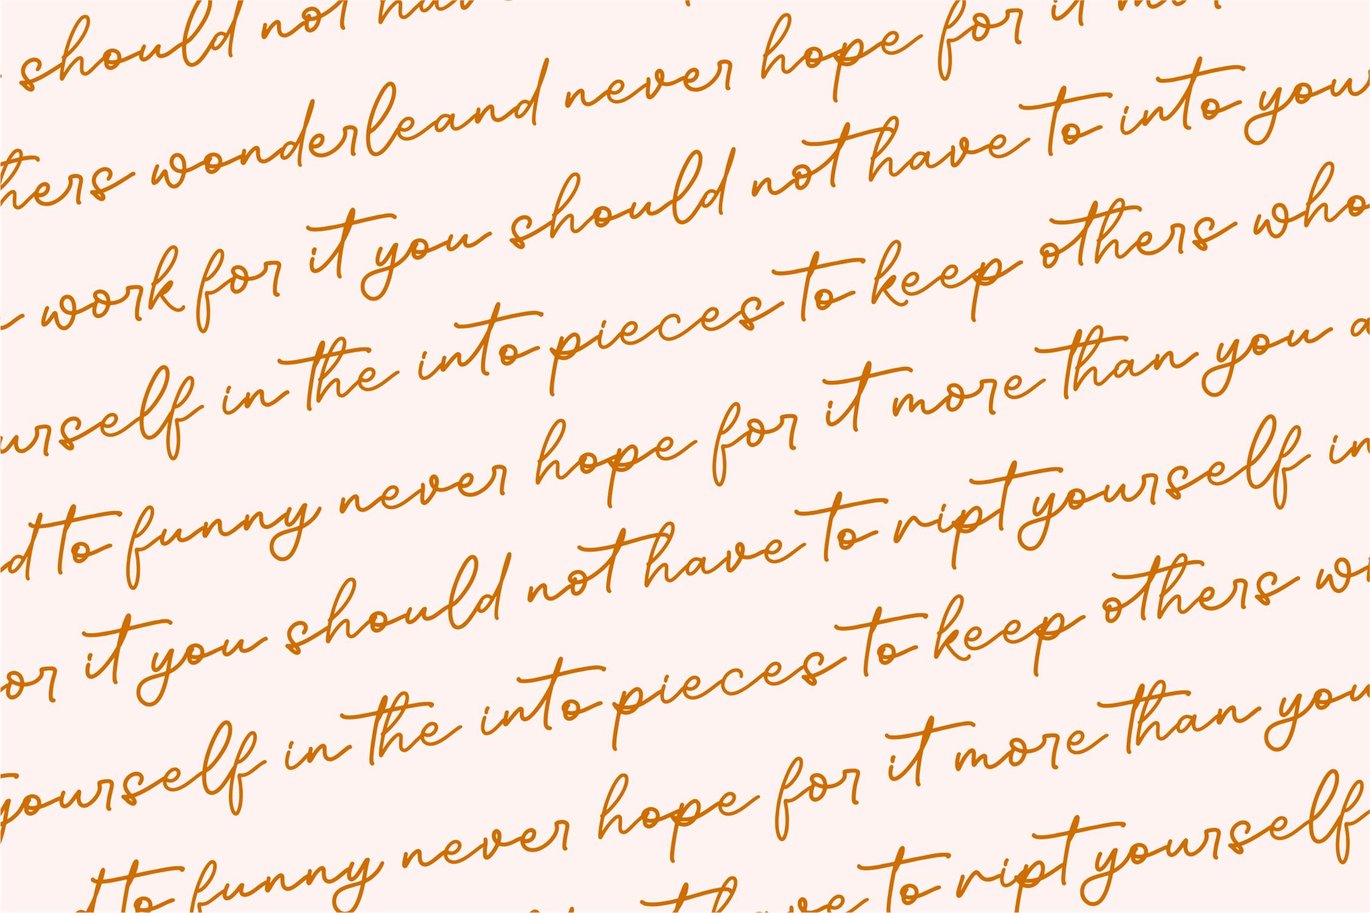 should not hav
thers wonderleand never hope for it mor
work for it you should not have to into your
urself in the into pieces to keep others who
d to funny never hope for it more than you a
or it you should not have to ript yourself in
yourself in the into pieces to keep others w
d to funny never hope for it more than you
t have to ript yourself